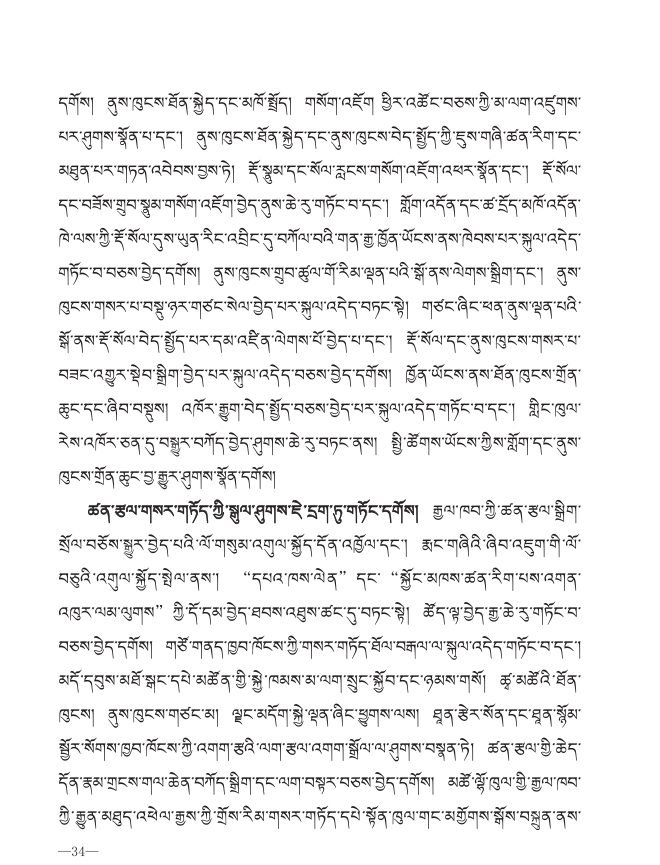 དགོས། ནུས་ཁུངས་ཐོན་སྐྱེད་དང་མཁོ་སྤྲོད། གསོག་འཇོག ཕྱིར་འཚོང་བཅས་ཀྱི་མ་ལག་འཛུགས་
པར་ཤུགས་སྣོན་པ་དང་། ནུས་ཁུངས་ཐོན་སྐྱེད་དང་ནུས་ཁུངས་བེད་སྤྱོད་ཀྱི་ཇུས་གཞི་ཚན་རིག་དང་
མཐུན་པར་གཏན་འབེབས་བྱས་ཏེ། རྡོ་སྣུམ་དང་སོལ་རླངས་གསོག་འཇོག་འཕར་སྣོན་དང་། རྡོ་སོལ་
དང་བཟོས་གྲུབ་སྣུམ་གསོག་འཇོག་བྱེད་ནུས་ཆེ་རུ་གཏོང་བ་དང་། གློག་འདོན་དང་ཚ་དྲོད་མཁོ་འདོན་
ཁེ་ལས་ཀྱི་རྡོ་སོལ་དུས་ཡུན་རིང་འབྲིང་དུ་བཀོལ་བའི་གན་རྒྱ་ཁྱོན་ཡོངས་ནས་ཁེབས་པར་སྐུལ་འདེད་
གཏོང་བ་བཅས་བྱེད་དགོས། ནུས་ཁུངས་གྲུབ་ཚུལ་གོ་རིམ་ལྡན་པའི་སྒོ་ནས་ལེགས་སྒྲིག་དང་། ནུས་
ཁུངས་གསར་པ་བསྡུ་ཉར་གཙང་སེལ་བྱེད་པར་སྐུལ་འདེད་བཏང་སྟེ། གཙང་ཞིང་ཕན་ནུས་ལྡན་པའི་
སྒོ་ནས་རྡོ་སོལ་བེད་སྤྱོད་པར་དམ་འཛིན་ལེགས་པོ་བྱེད་པ་དང་། རྡོ་སོལ་དང་ནུས་ཁུངས་གསར་པ་
བཟང་འགྱུར་སྡེབ་སྒྲིག་བྱེད་པར་སྐུལ་འདེད་བཅས་བྱེད་དགོས། ཁྱོན་ཡོངས་ནས་ཐོན་ཁུངས་གྲོན་
ཆུང་དང་ཞིབ་བསྡུས། འཁོར་རྒྱུག་བེད་སྤྱོད་བཅས་བྱེད་པར་སྐུལ་འདེད་གཏོང་བ་དང་། གླིང་ཁུལ་
རེས་འཁོར་ཅན་དུ་བསྒྱུར་བཀོད་བྱེད་ཤུགས་ཆེ་རུ་བཏང་ནས། སྤྱི་ཚོགས་ཡོངས་ཀྱིས་གློག་དང་ནུས་
ཁུངས་གྲོན་ཆུང་བྱ་རྒྱུར་ཤུགས་སྣོན་དགོས།
ཚན་རྩལ་གསར་གཏོད་ཀྱི་སྒུལ་ཤུགས་ཇེ་དྲག་ཏུ་གཏོང་དགོས། རྒྱལ་ཁབ་ཀྱི་ཚན་རྩལ་སྒྲིག་
སྲོལ་བཅོས་སྒྱུར་བྱེད་པའི་ལོ་གསུམ་འགུལ་སྐྱོད་དོན་འཁྱོལ་དང་། རྨང་གཞིའི་ཞིབ་འཇུག་གི་ལོ་
བཅུའི་འགུལ་སྐྱོད་སྤེལ་ནས། “དཔའ་ཁས་ལེན” དང་ “སྐྱོང་མཁས་ཚན་རིག་པས་འགན་
འཁུར་ལམ་ལུགས” ཀྱི་དོ་དམ་བྱེད་ཐབས་འཐུས་ཚང་དུ་བཏང་སྟེ། ཚོད་ལྟ་བྱེད་རྒྱ་ཆེ་རུ་གཏོང་བ་
བཅས་བྱེད་དགོས། གཙོ་གནད་ཁྱབ་ཁོངས་ཀྱི་གསར་གཏོད་ཐོལ་བརྒལ་ལ་སྐུལ་འདེད་གཏོང་བ་དང་།
མདོ་དབུས་མཐོ་སྒང་དཔེ་མཚོན་གྱི་སྐྱེ་ཁམས་མ་ལག་སྲུང་སྐྱོབ་དང་ཉམས་གསོ། ཚྭ་མཚོའི་ཐོན་
ཁུངས། ནུས་ཁུངས་གཙང་མ། ལྗང་མདོག་སྐྱེ་ལྡན་ཞིང་ཕྱུགས་ལས། ཐན་རྩེར་སོན་དང་ཐན་སྙོམ་
སྦྱོར་སོགས་ཁྱབ་ཁོངས་ཀྱི་འགག་རྩའི་ལག་རྩལ་འགག་སྒྲོལ་ལ་ཤུགས་བསྣན་ཏེ། ཚན་རྩལ་གྱི་ཆེད་
དོན་རྣམ་གྲངས་གལ་ཆེན་བཀོད་སྒྲིག་དང་ལག་བསྟར་བཅས་བྱེད་དགོས། མཚོ་ལྷོ་ཁུལ་གྱི་རྒྱལ་ཁབ་
ཀྱི་རྒྱུན་མཐུད་འཕེལ་རྒྱས་ཀྱི་གྲོས་རིམ་གསར་གཏོད་དཔེ་སྟོན་ཁུལ་གང་མགྱོགས་སྒོས་བསྐྲུན་ནས་
—34—